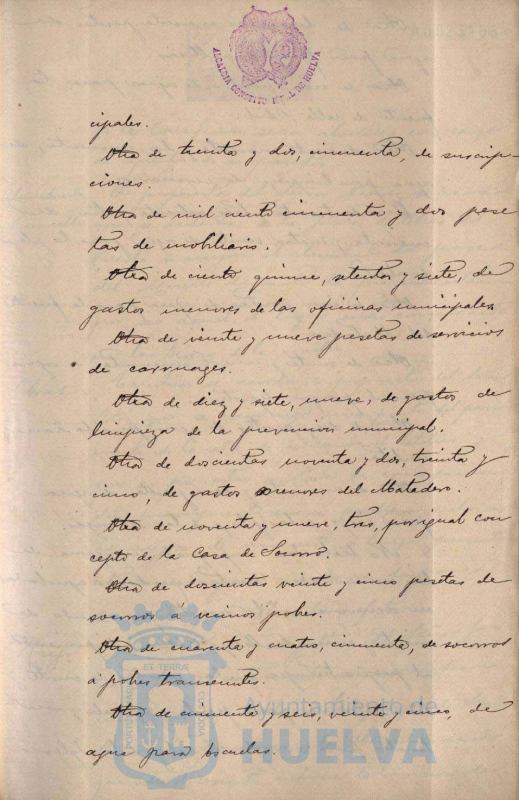 ALCALDIA CONSTITUCIONAL DE HUELVA
cipales.
Otra de treinta y dos, cincuenta, de suscrip-
ciones.
Otra de mil ciento cincuenta y dos pese
tas de mobiliario.
Otra de ciento quince, setenta y siete, de
gastos menores de las oficinas municipales.
Otra de veinte y nueve pesetas de servicios
de carruages.
Otra de diez y siete, nueve, de gastos de
limpieza de la prevencion municipal.
Otra de doscientas noventa y dos, treinta y
cinco, de gastos menores del Matadero.
Otra de noventa y nueve, tres, por igual con
cepto de la Casa de Socorro.
Otra de doscientas veinte y cinco pesetas de
socorros á vecinos pobres.
Otra de cuarenta y cuatro, cincuenta, de socorros
á pobres transeuntes.
Otra de cincuenta y seis, veinte y cinco, de
agua para Escuelas.
ET TERRÆ
PORTUS MARIS
CUSTODIA
Ayuntamiento de
HUELVA